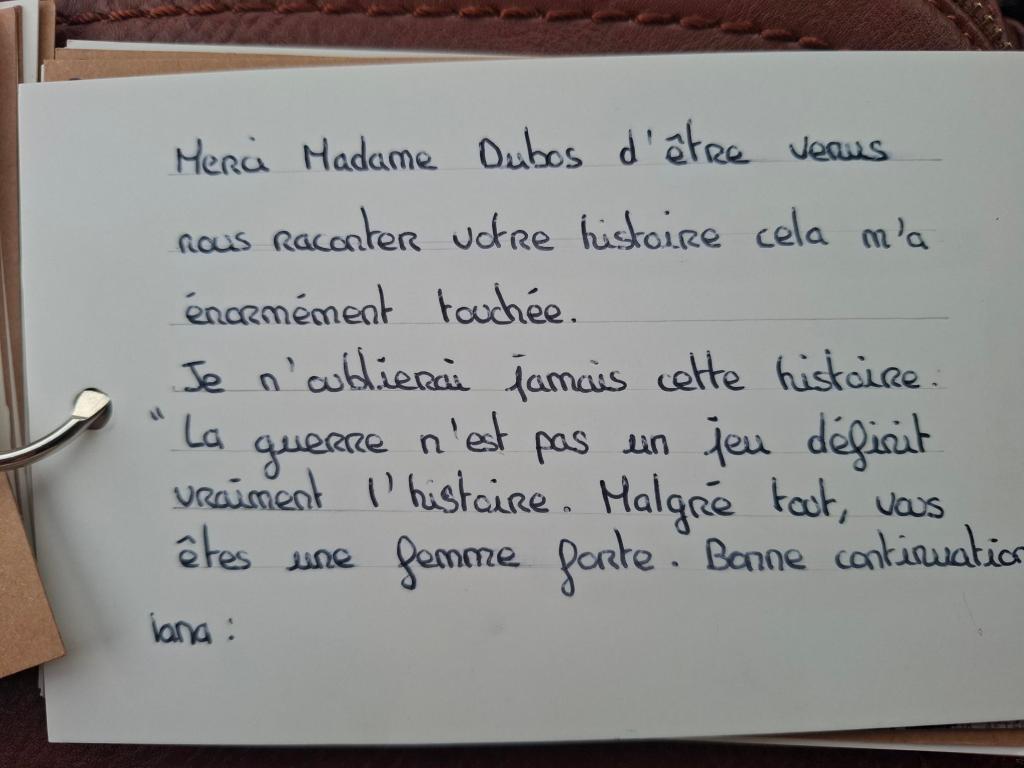 Merci Madame Dubos d'être venus
nous raconter votre histoire cela m'a
énormément touchée.
Je n'oublierai jamais cette histoire.
" La guerre n'est pas un jeu définit
vraiment l'histoire. Malgré tout, vous
êtes une femme forte. Bonne continuation
iana :